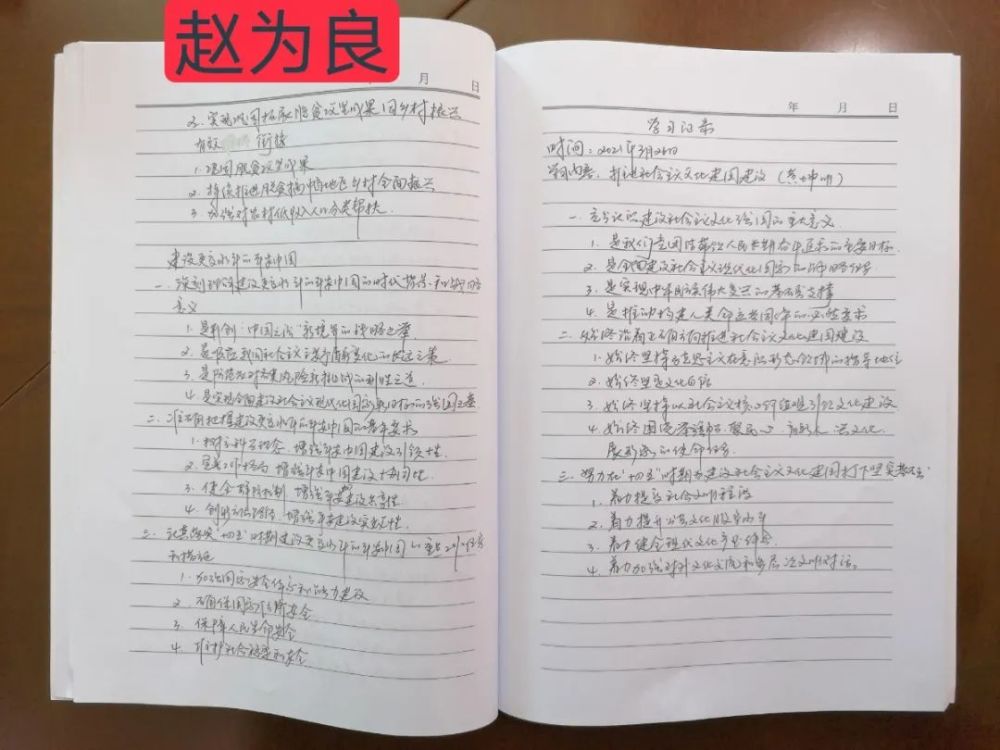 赵为良
月 日
3. 实现巩固拓展脱贫攻坚成果同乡村振兴
有效 衔接
1. 巩固脱贫攻坚成果
2. 持续推进脱贫摘帽地区乡村全面振兴
3. 加强对农村低收入人口分类帮扶.
建设更高水平的平安中国
一. 深刻理解建设更高水平的平安中国的时代背景和战略
意义
1. 是开创"中国之治"新境界的战略之举
2. 是顺应我国社会主要矛盾新变化的长远之策
3. 是防范应对各类风险新挑战的制胜之道.
4. 是实现全面建设社会主义现代化国家新目标的强国之基
二. 准确把握建设更高水平的平安中国的基本要求
1. 树立科学理念, 增强平安中国建设引领性
2.
3. 健全 机制 增强平安建设共享性
4. 增强平安建设实效性.
三. "十四五"时期建设更高水平的平安中国的重点
和措施
1. 加强国家安全体系和能力建设
2. 确保国家经济安全
3. 保障人民生命安全
4. 维护社会稳定和安全
年 月 日
学习记录
时间: 2021年3月
学习内容: 推进社会主义文化强国建设 (黄坤明)
一. 充分认识建设社会主义文化强国的重大意义
1. 是我们党团结带领人民长期奋斗追求的重要目标.
2. 是全面建设社会主义现代化国家的战略任务
3. 是实现中华民族伟大复兴的基础支撑
4. 是推动构建人类命运共同体的必然要求
二. 始终沿着正确方向推进社会主义文化强国建设
1. 始终坚持马克思主义在意识形态领域的指导地位
2. 始终坚定文化自信
3. 始终坚持以社会主义核心价值观引领文化建设
4. 始终围绕举旗帜. 聚民心. 育新人. 兴文化.
展形象的使命任务.
三. 努力在"十四五"时期为建设社会主义文化强国打下坚实基础
1. 着力提高社会文明程度
2. 着力提升公共文化服务水平
3. 着力健全现代文化产业体系
4. 着力加强对外文化交流和多层次文明对话.